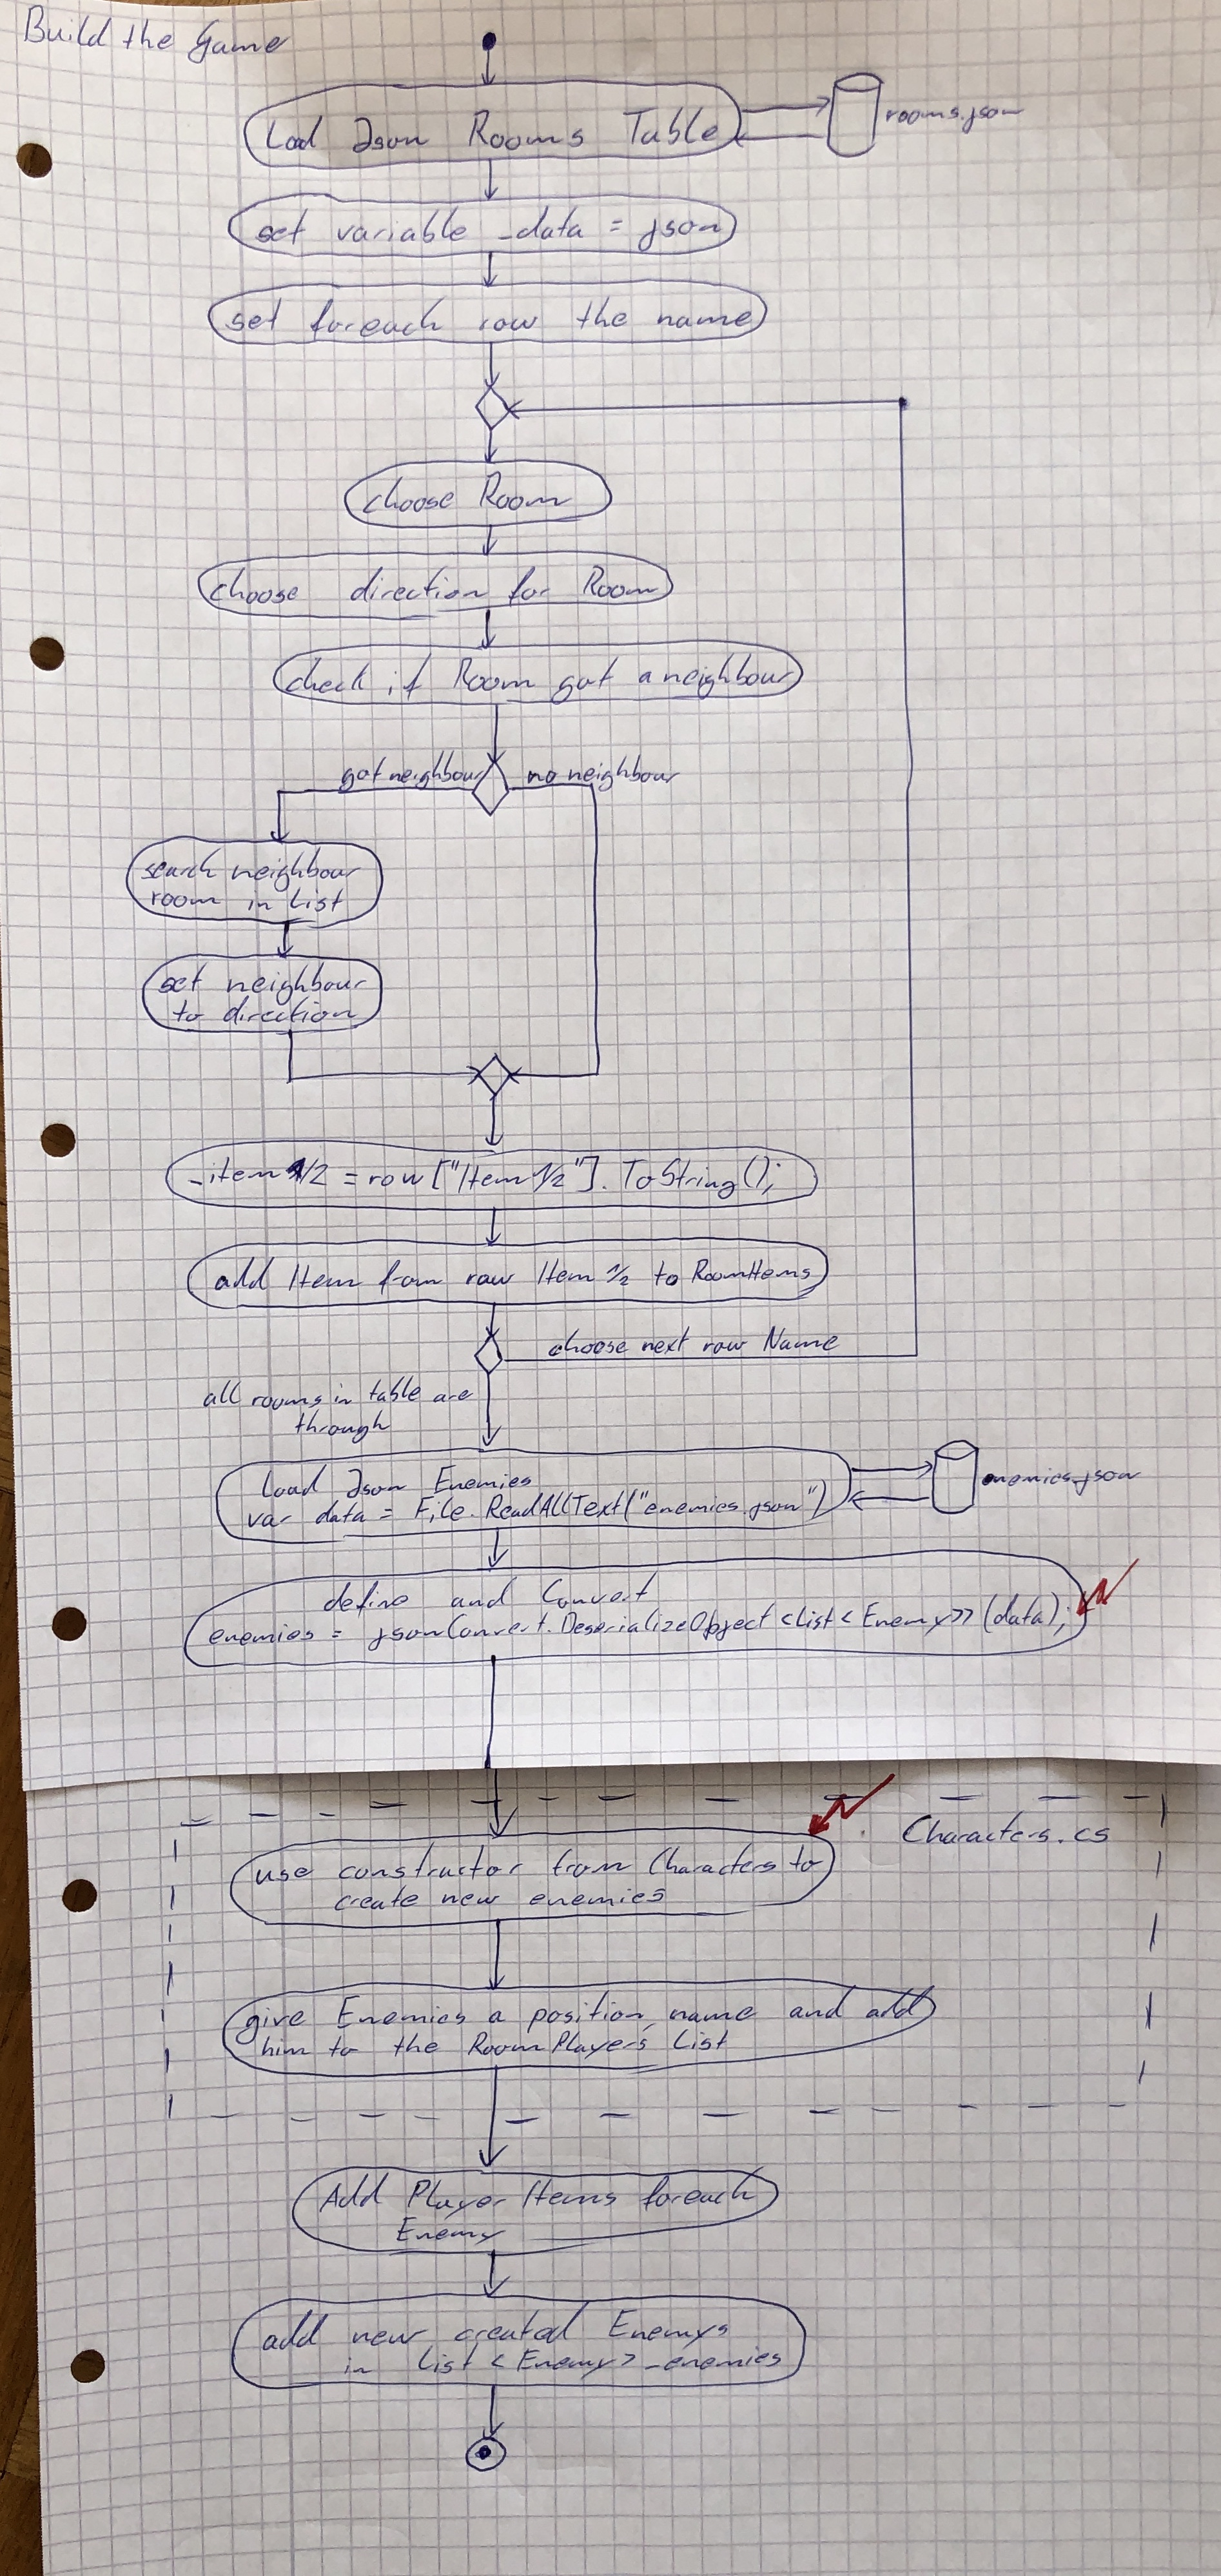 Build the Game
Load Json Rooms Table
rooms.json
set variable _data = json
set foreach row the name
choose Room
choose direction for Room
check if Room got a neighbour
got neighbour
no neighbour
search neighbour
room in List
set neighbour
to direction
_item 1/2 = row ["Item 1/2"]. ToString();
add Item from row Item 1/2 to RoomItems
choose next row Name
all rooms in table are
through
Load Json Enemies
var data = File.ReadAllText("enemies.json")
enemies.json
define and Convert
enemies = jsonConvert.DeserializeObject<List<Enemy>>(data);
Characters.cs
use constructor from Characters to
create new enemies
give Enemies a position, name and add
him to the RoomPlayers List
Add Player Items foreach
Enemy
add new created Enemys
in List <Enemy> _enemies